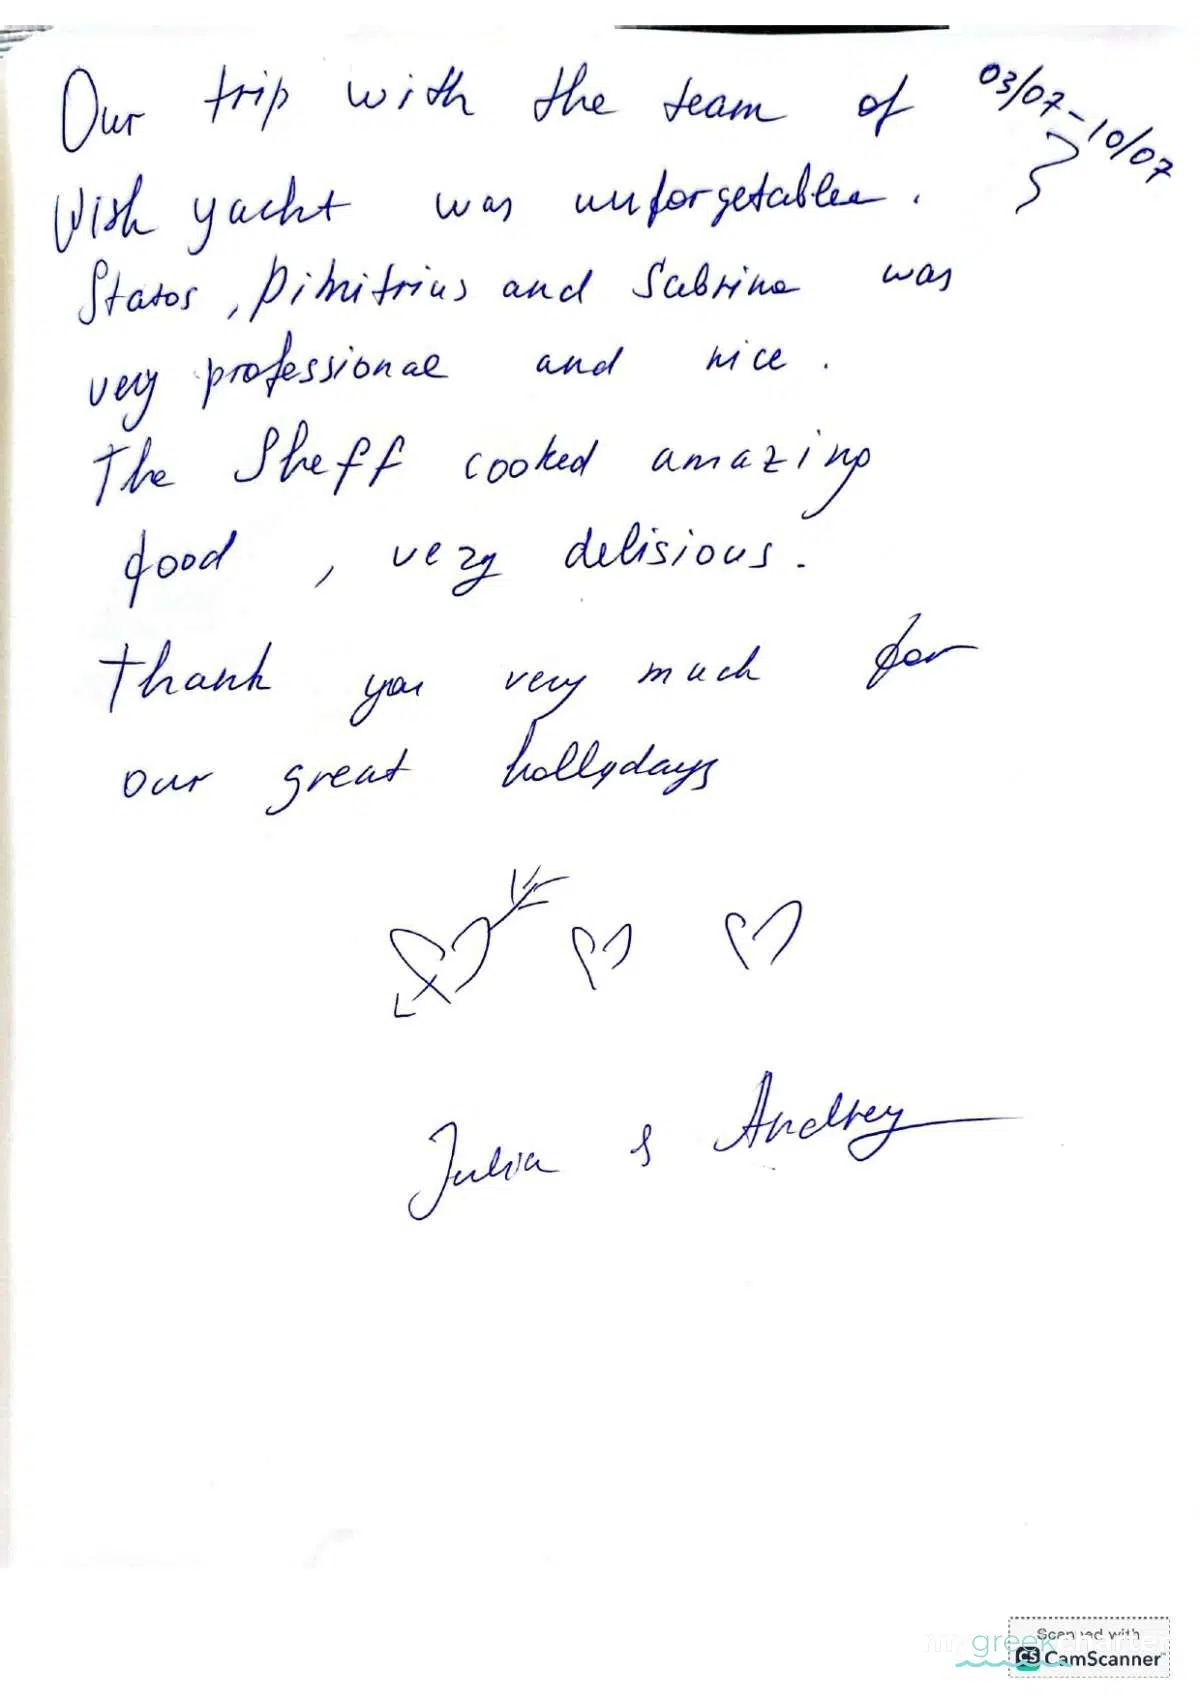 Our trip with the team of 03/07-10/07
Wish yacht was unforgetablee.
Statos, Dimitrius and Sabrina was
very professional and nice.
The Sheff cooked amazing
food, very delisious.
Thank you very much for
our great hollydays
Julia & Andrey
my greek charter
Scanned with
CS CamScanner